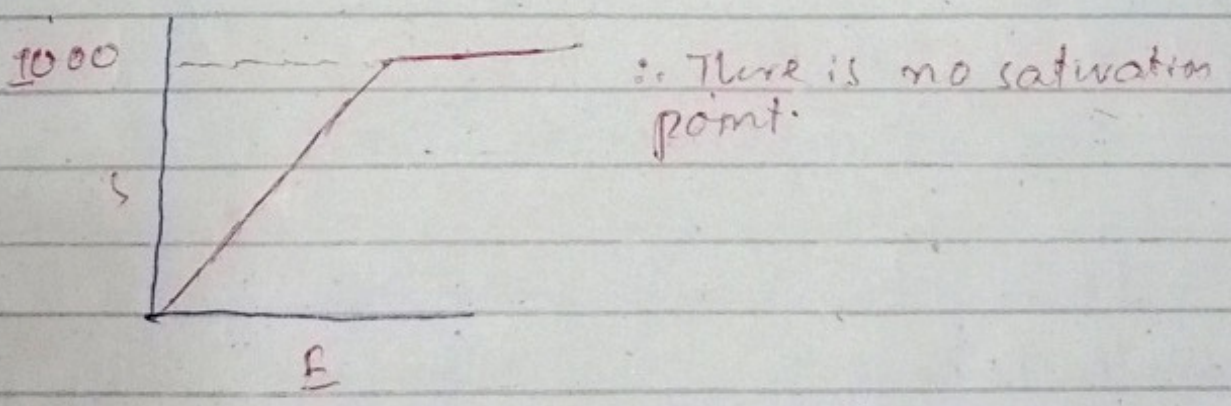 1000
∴ There is no saturation
point.
S
E